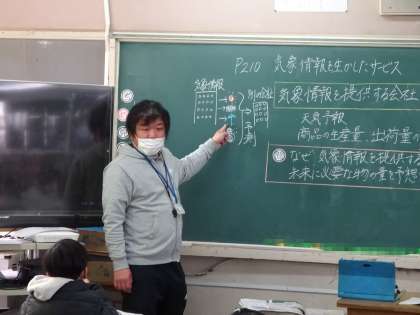 P210 気象情報を生かしたサービス
気象情報
気象情報を提供する会社
天気予報
商品の生産量、出荷量の
予測
なぜ、気象情報を提供す
未来に必要な物の量を予想